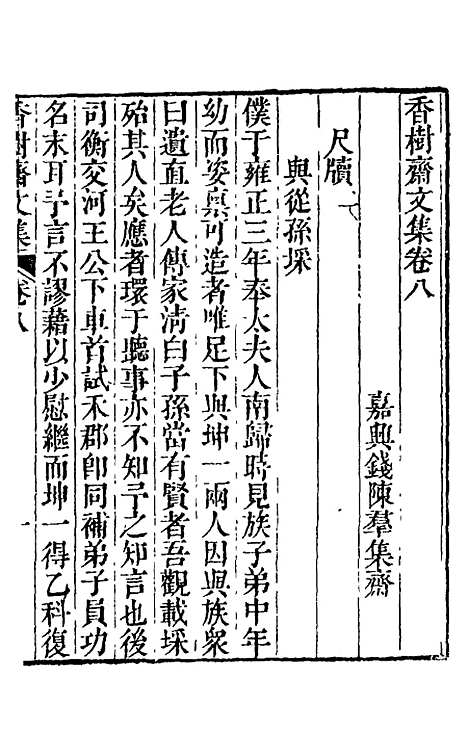 香樹齋文集卷八
嘉興錢陳羣集齋
尺牘一
與從孫埰
僕于雍正三年奉太夫人南歸時見族子弟中年
幼而姿稟可造者唯足下與坤一兩人因與族衆
曰遺直老人傳家淸白子孫當有賢者吾觀載埰
殆其人矣應者環于聽事亦不知予之知言也後
司衡交河王公下車首試禾郡卽同補弟子員功
名末耳予言不謬藉以少慰繼而坤一得乙科復
香樹齋文集
卷八
一